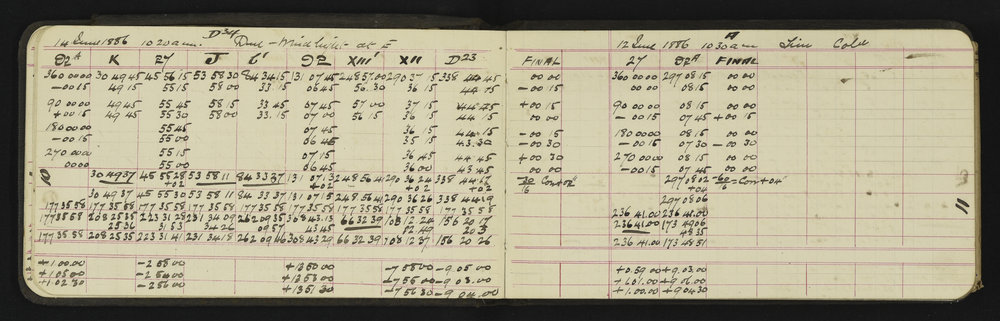 D34
14 June 1886 10.20 a.m. Dull - Wind light at E
92A K 27 J 6' 92 XIII' XII D23
360 00 00 30 49 45 45 56 15 53 58 30 84 34 15 131 07 45 248 57 00 290 37 15 338 44 45
-00 15 49 15 55 15 58 00 33 15 06 45 56 30 36 15 44 15
90 00 00 49 45 55 45 58 15 33 45 07 45 57 00 37 15 44 45
+00 15 49 45 55 30 58 00 33 15 07 00 56 15 36 15 44 15
180 00 00 55 45 07 45 36 45 44 15
-00 15 55 00 06 45 35 15 43 30
270 00 00 55 15 07 15 36 45 44 45
00 00 55 00 06 45 36 00 43 45
10 30 49 37 45 55 28 53 58 11 84 33 37 131 07 13 248 56 41 290 36 24 338 44 17
+02 +02 +02 +02
30 49 37 45 55 30 53 58 11 84 33 37 131 07 15 248 56 41 290 36 26 338 44 19
177 35 58 177 35 58 177 35 58 177 35 58 177 35 58 177 35 58 177 35 58 177 35 58 177 35 58
177 35 58 208 25 35 223 31 28 231 34 09 262 09 35 308 43 13 66 32 39 108 12 24 156 20 17
25 36 31 53 34 26 09 57 43 45 12 49 20 35
177 35 58 208 25 35 223 31 41 231 34 18 262 09 46 308 43 29 66 32 39 108 12 37 156 20 26
+1 00 00 -2 58 00 +13 50 00 -7 58 00 -9 05 00
+1 05 00 -2 54 00 +13 53 00 -7 55 00 -9 03 00
+1 02 30 -2 56 00 +13 51 30 -7 56 30 -9 04 00
A
12 June 1886 10 30 am Fine Cold
FINAL 27 92A FINAL
00 00 360 00 00 297 08 15 00 00
-00 15 00 00 08 15 00 00
+00 15 90 00 00 08 15 00 00
00 00 -00 15 07 45 +00 15
-00 15 180 00 00 08 15 00 00
-00 30 -00 15 07 30 -00 30
+00 30 270 00 00 08 15 00 00
00 00 -00 15 07 45 00 00
297 08 02
+04
297 08 06
236 41 00 236 41 00
236 41 00 173 49 06
48 35
236 41 00 173 48 51
+0 59 00 +9 03 00
+1 01 00 +9 06 00
+1 00 00 +9 04 30
11